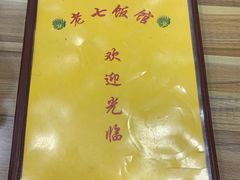 老七饭馆
欢迎光临